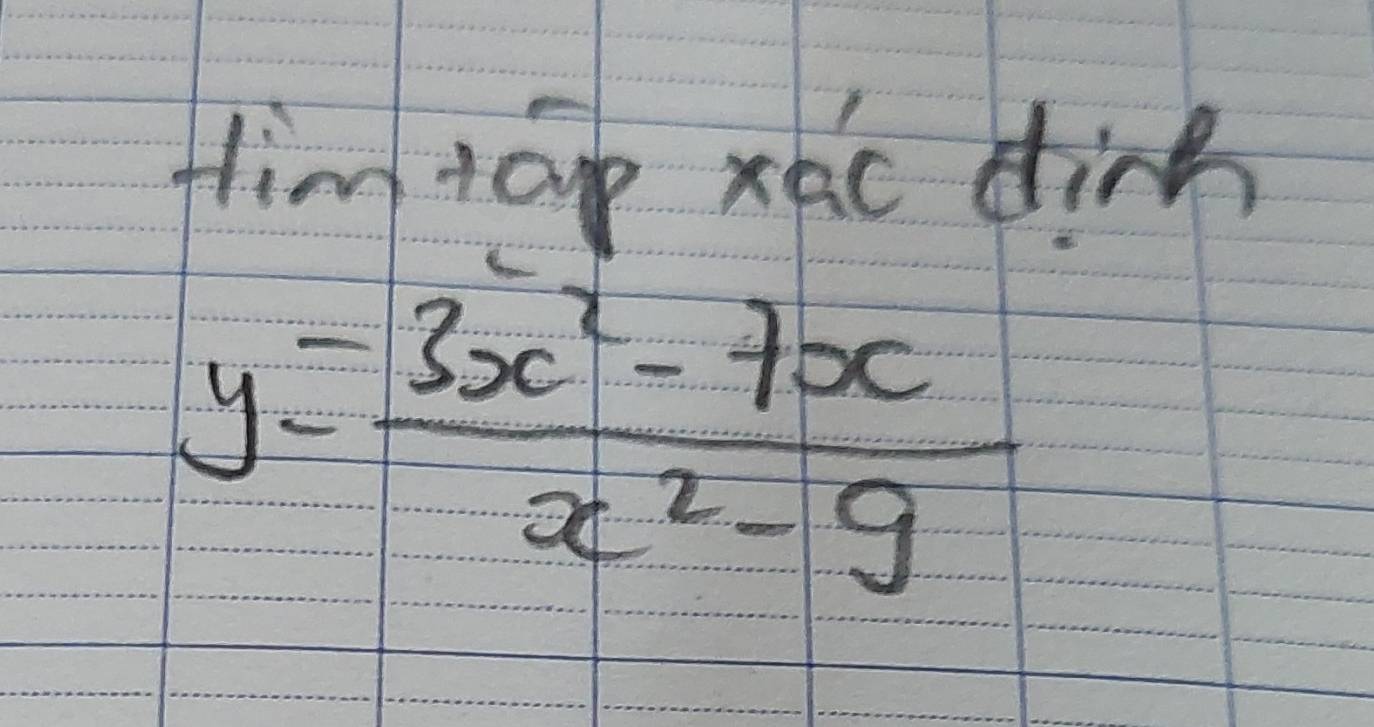 tìm tập xác định
y = 3x² - 7x
x² - 9